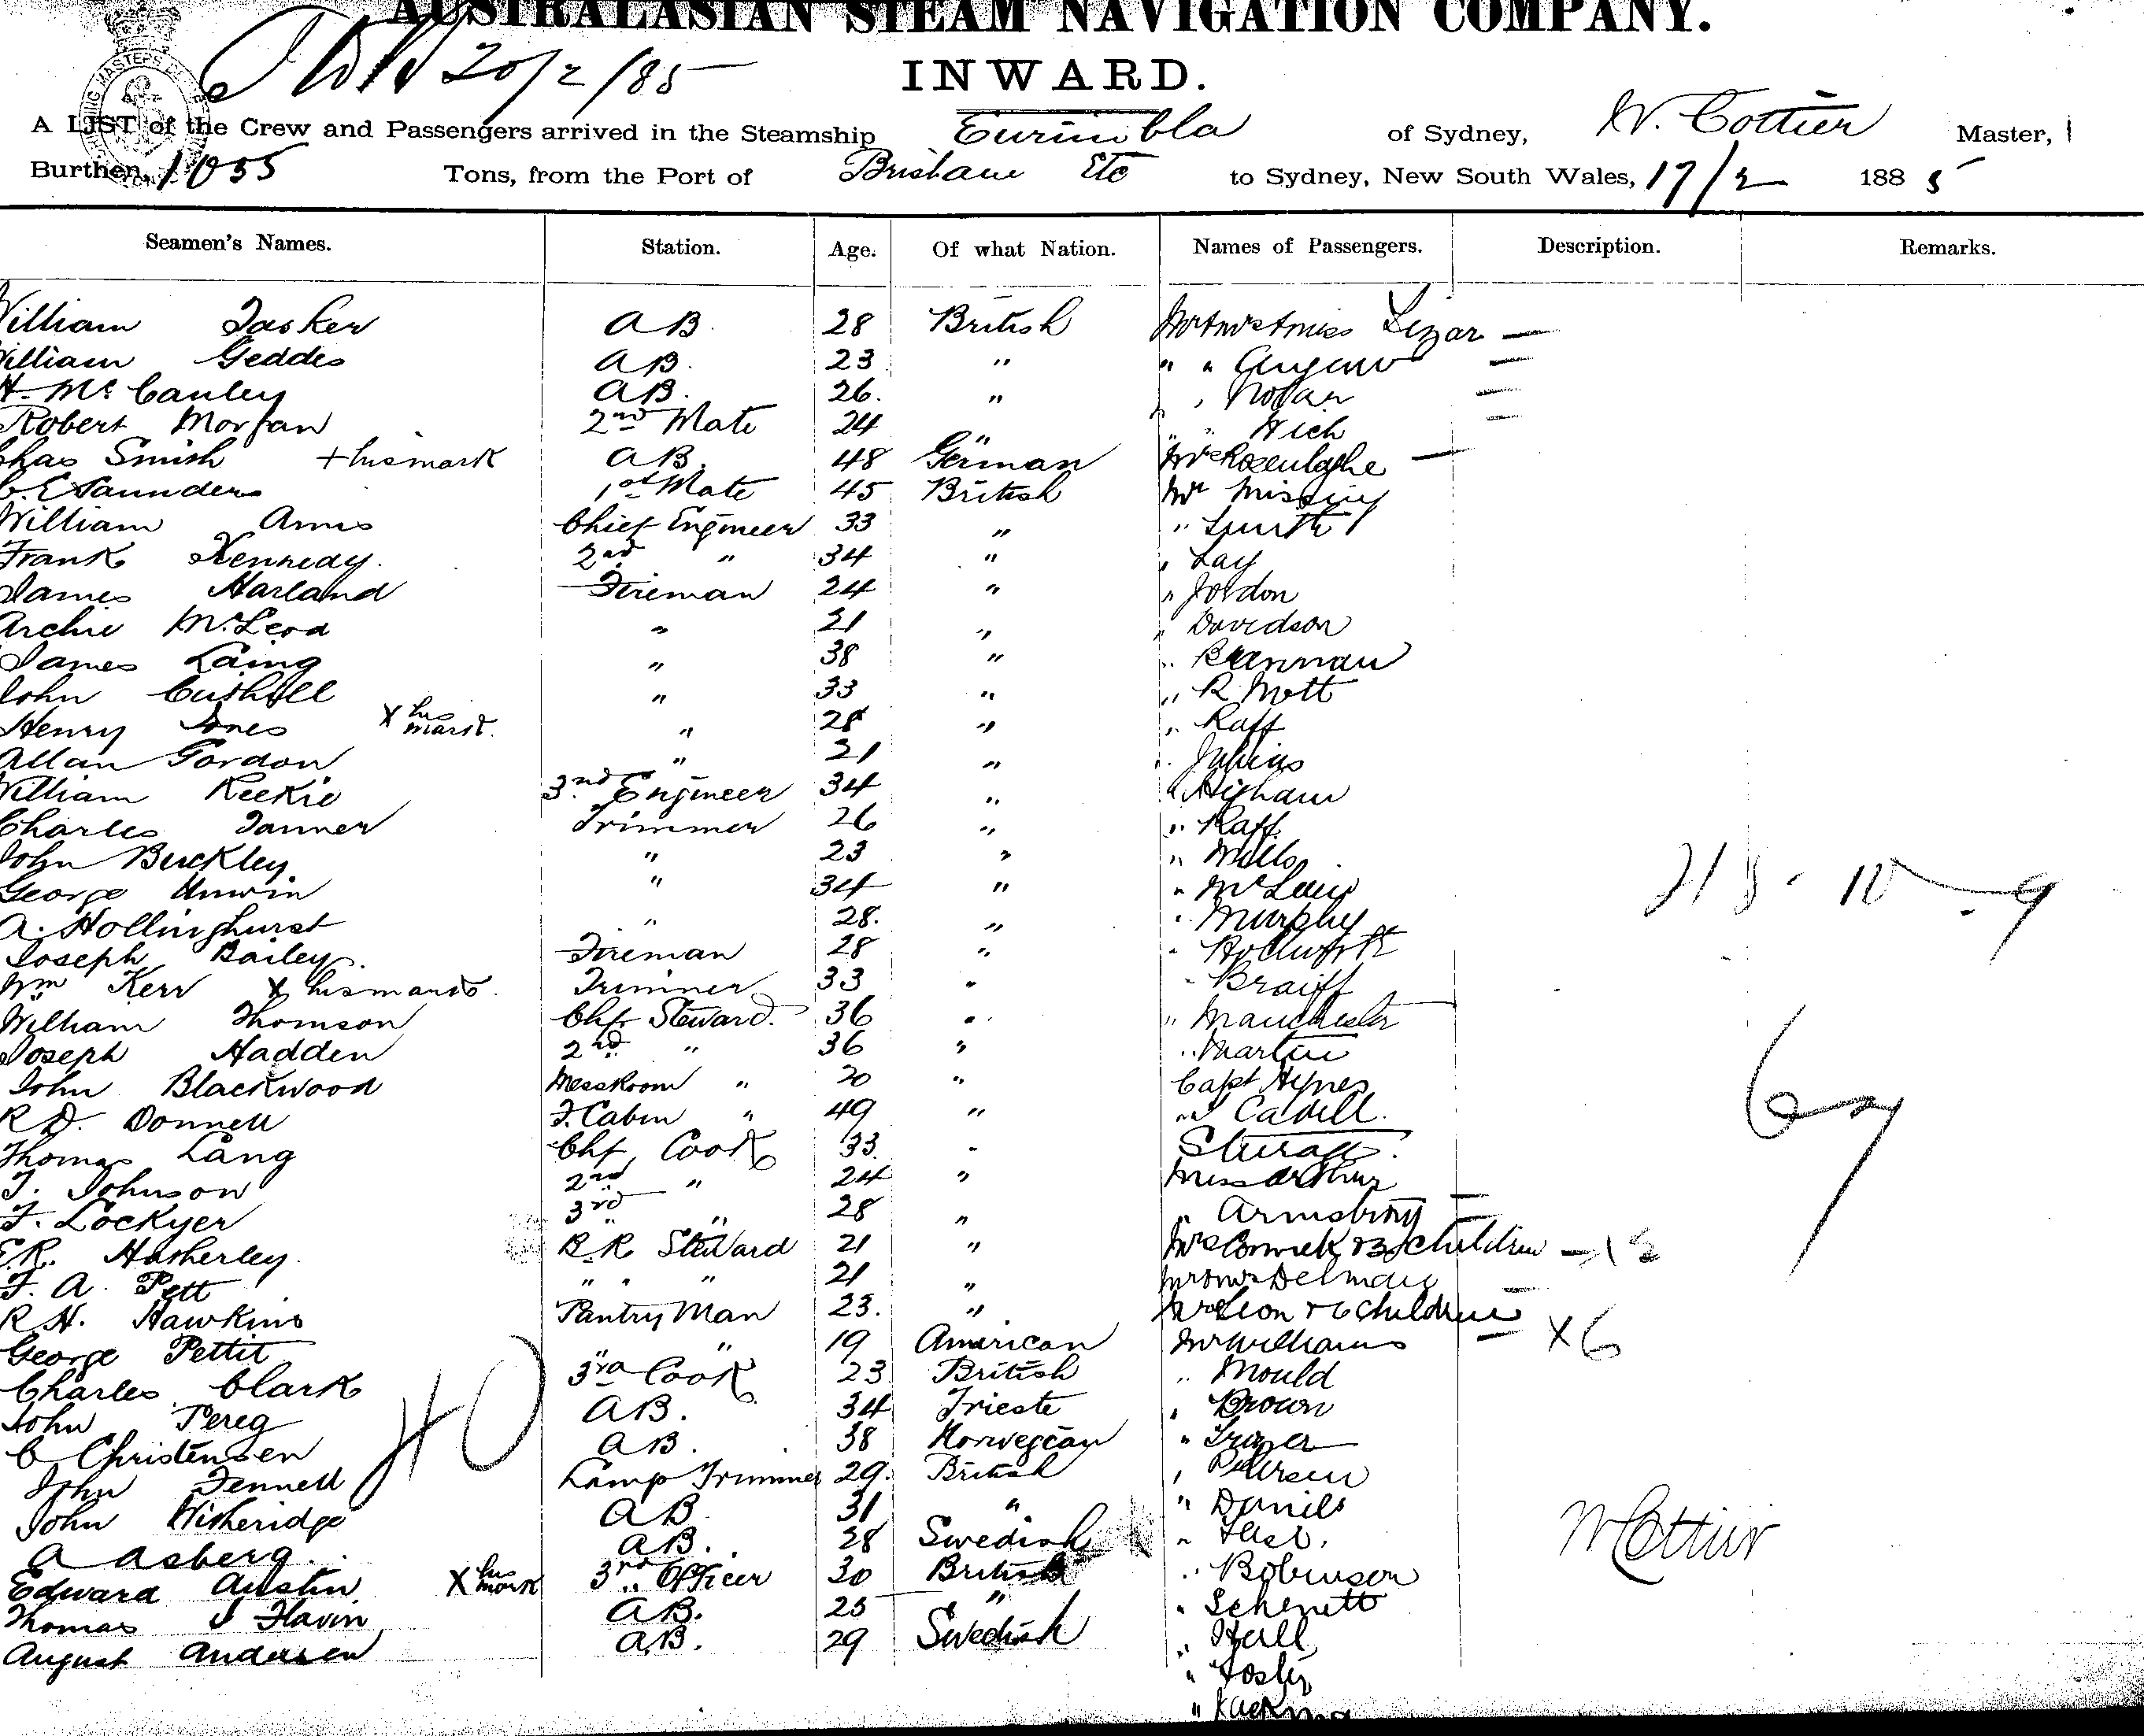 AUSTRALASIAN STEAM NAVIGATION COMPANY.
20/2/85
INWARD.
A LIST of the Crew and Passengers arrived in the Steamship Eurimbla of Sydney, W. Cottier Master,
Burthen, 1055 Tons, from the Port of Brisbane Etc to Sydney, New South Wales, 17/2 1885
Seamen's Names. Station. Age. Of what Nation. Names of Passengers. Description. Remarks.
William Tasker AB. 28 British Mr & Mrs & Miss Lezar —
William Geddes AB. 23 " " " —
H. McCauley AB. 26. " " Nolan —
Robert Morgan 2nd Mate 24 " " " —
Chas Smish + his mark AB. 48 German Mrs —
C. E Saunders 1st Mate 45 British Mr Missing
William Arms Chief Engineer 33 " "
Frank Kennedy. 2nd " 34 " " Lay
James Harland Fireman 24 " " Jordon
Archie McLeod " 21 " " Davidson
James Laing " 38 " " Brannan
John Cuthill " 33 " " R Mott
Henry Jones X his mark. " 28 " " Raff
Allan Gordon " 21 " " Julius
William Keekie 3nd Engineer 34 " " Higham
Charles Tanner Trimmer 26 " " Raff.
John Buckley " 23 " " Mills
George Unwin " 34 " "
A. Hollinghurst " 28. " " Murphy
Joseph Bailey. Fireman 28 " "
Wm Kerr X his mark. Trimmer 33 " "
William Thomson Chf Steward. 36 " " Manchester
Joseph Hadden 2nd " 36 " " Martin
John Blackwood Messroom " 20 " Capt Hynes
R D. Donnell F. Cabin " 49 " " Cadell.
Thomas Lang Chf Cook 33 "
T. Johnson 2nd " 24 " Miss Arthur
F. Lockyer 3rd " 28 " " Armstrong —
E.R. Hatherley. R R Steward 21 " Mrs & 3 Children —
F. A. Pett " " " 21 " —
R H. Hawkins Pantry Man 23. " & 6 Children
George Pettit " 19 American Mr Williams — X6
Charles Clark 3rd Cook 23 British " Mould
John Pereg AB. 34 Trieste " Brown
C Christensen AB. 38 Norwegian "
John Fennell Lamp Trimmer 29. British "
John Witheridge AB 31 " " Daniels
A Asberg. AB. 28 Swedish "
Edward Austin X his mark 3rd Officer 30 British " Robinson
Thomas J Flavin AB. 25 " "
August Andersen AB. 29 Swedish " Hall
" Foster
40
W Cottier